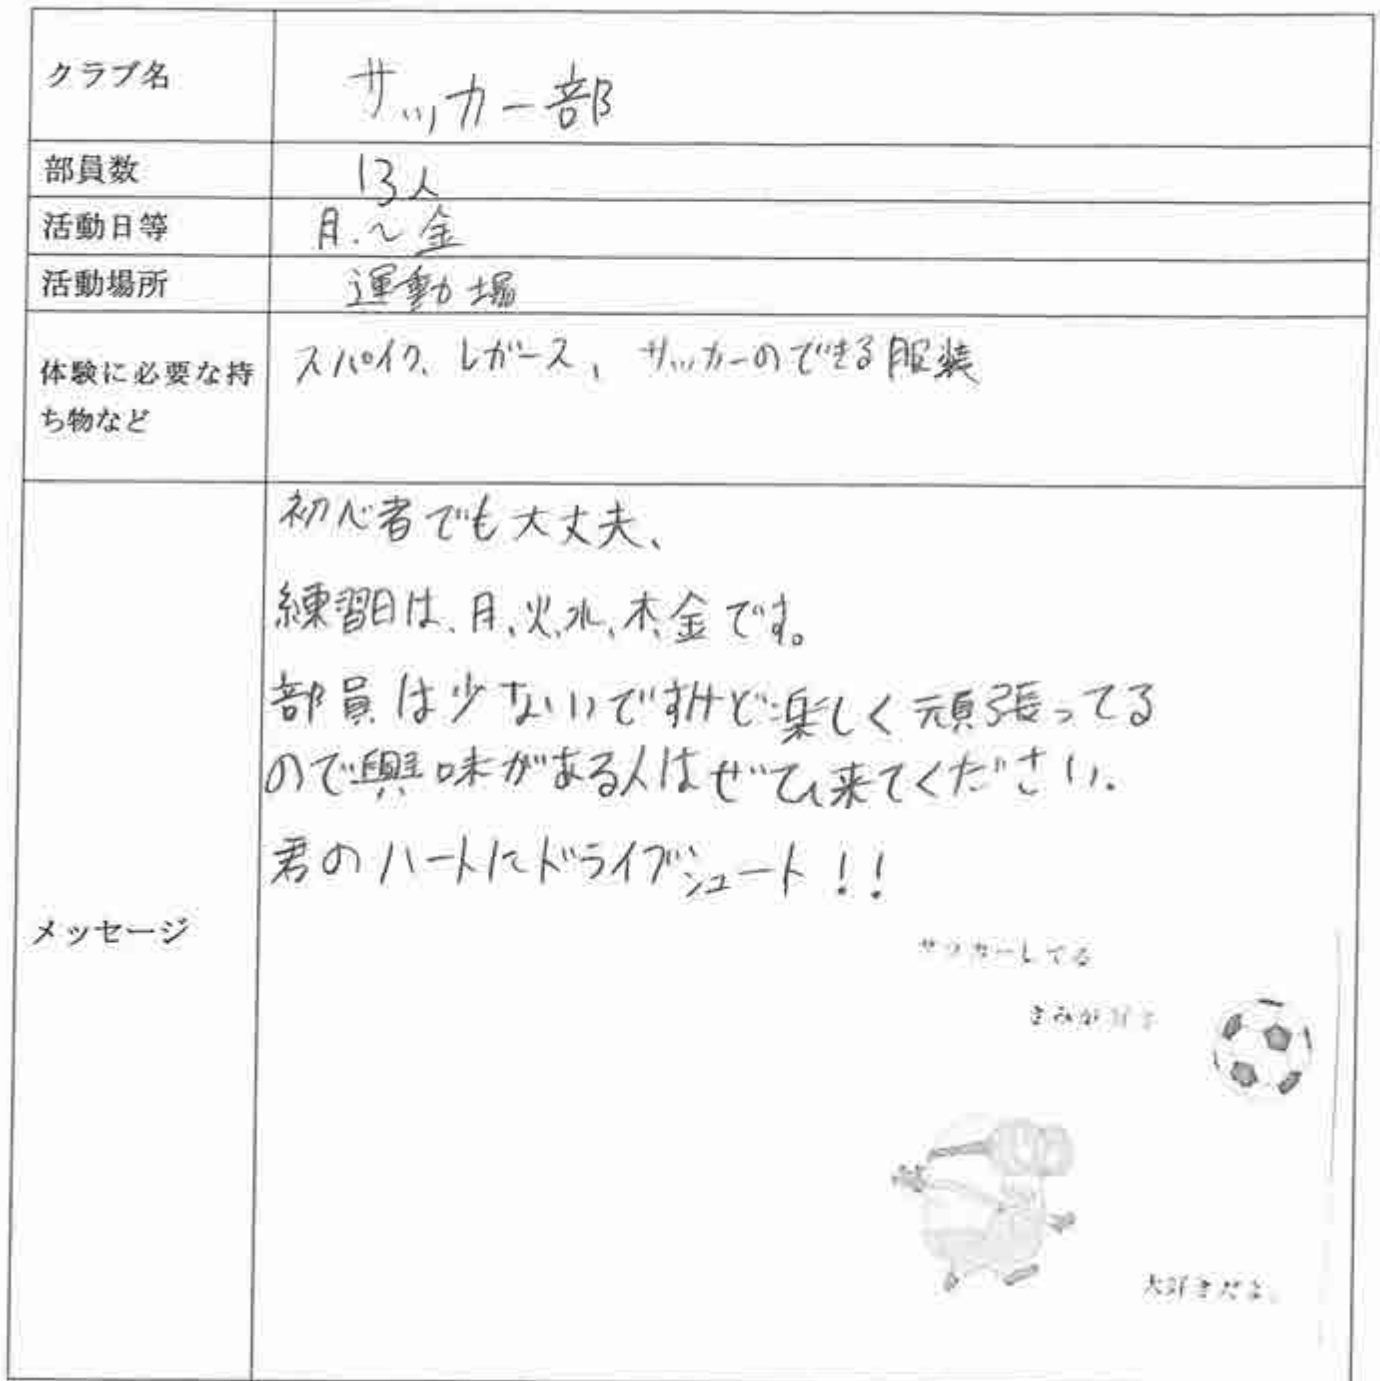 クラブ名
サッカー部
部員数
13人
活動日等
月.~金
活動場所
運動場
体験に必要な持
ち物など
スパイク、レガース、サッカーのできる服装
メッセージ
初心者でも大丈夫、
練習日は、月、火、水、木、金です。
部員は少ないですけど楽しく頑張ってる
ので興味がある人はぜひ来てください。
君のハートにドライブシュート!!
サッカーしてる
きみが
大好きだよ。